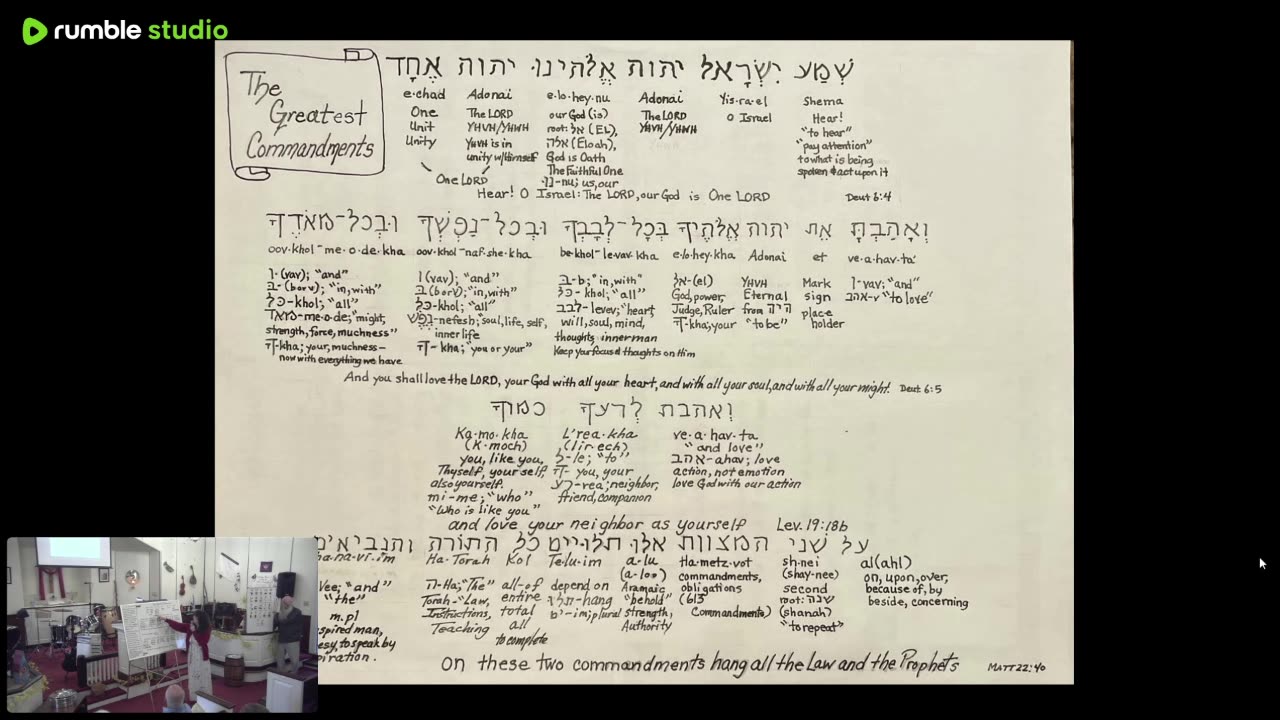 rumble studio
The
Greatest
Commandments
שְׁמַע יִשְׂרָאֵל יהוה אֱלֹהֵינוּ יהוה אֶחָד
e·chad Adonai e·lo·hey·nu Adonai Yis·ra·el Shema
One The LORD our God (is) The LORD O Israel Hear!
Unit YHVH/YHWH root: אל (EL), YHVH/YHWH "to hear"
Unity YHVH is in אלה (Eloah), "pay attention"
unity w/Himself God is Oath to what is being
The Faithful One spoken & act upon it
One LORD נו-nu; us, our
Hear! O Israel: The LORD, our God is One LORD Deut 6:4
וְאָהַבְתָּ אֵת יהוה אֱלֹהֶיךָ בְּכָל-לְבָבְךָ וּבְכָל-נַפְשְׁךָ וּבְכָל-מְאֹדֶךָ
oov·khol-me·o·de·kha oov·khol-naf·she·kha be·khol-le·vav·kha e·lo·hey·kha Adonai et ve·a·hav·ta
ו-(vav); "and" ו (vav); "and" ב-b; "in, with" אל-(el) YHVH Mark ו-vav; "and"
ב-(b or v); "in, with" ב (b or v); "in, with" כל- khol; "all" God, power, Eternal sign אהב-v "to love"
כל-khol; "all" כל-khol; "all" לבב-levev; "heart, Judge, Ruler from היה place
מאד-me·o·de; "might, נפש-nefesh; "soul, life, self, will, soul, mind, ך-kha; your "to be" holder
strength, force, muchness" inner life thoughts inner man
ך-kha; your, muchness- ך-kha; "you or your" Keep your focus & thoughts on Him
now with everything we have
And you shall love the LORD, your God with all your heart, and with all your soul, and with all your might. Deut 6:5
וְאהבת לְרעךָ כמוךָ
Ka·mo·kha L'rea·kha ve·a·hav·ta
(K·moch) (lir·ech) "and love"
you, like you, ל-le; "to" אהב-ahav; love
Thyself, yourself, ך- you, your action, not emotion
also yourself. רע-rea; neighbor, love God with our action
mi-me; "who" friend, companion
"Who is like you"
and love your neighbor as yourself Lev. 19:18b
על שני המצוות אלו תלויים כל התורה והנביאים
ha·na·vi·im Ha·Torah Kol Te·lu·im a·lu Ha·metz·vot sh·nei al(ahl)
(a·loo) commandments, (shay·nee) on, upon, over,
Vee; "and" ה-Ha; "The" all-of depend on Aramaic obligations second because of, by
"the" Torah-"Law, entire תלה-hang "behold" (613 root: שנה beside, concerning
m.pl Instructions, total ים-im; plural strength, Commandments) (shanah)
spired man, Teaching all Authority "to repeat"
esy, to speak by to complete
piration.
On these two commandments hang all the Law and the Prophets MATT 22:40